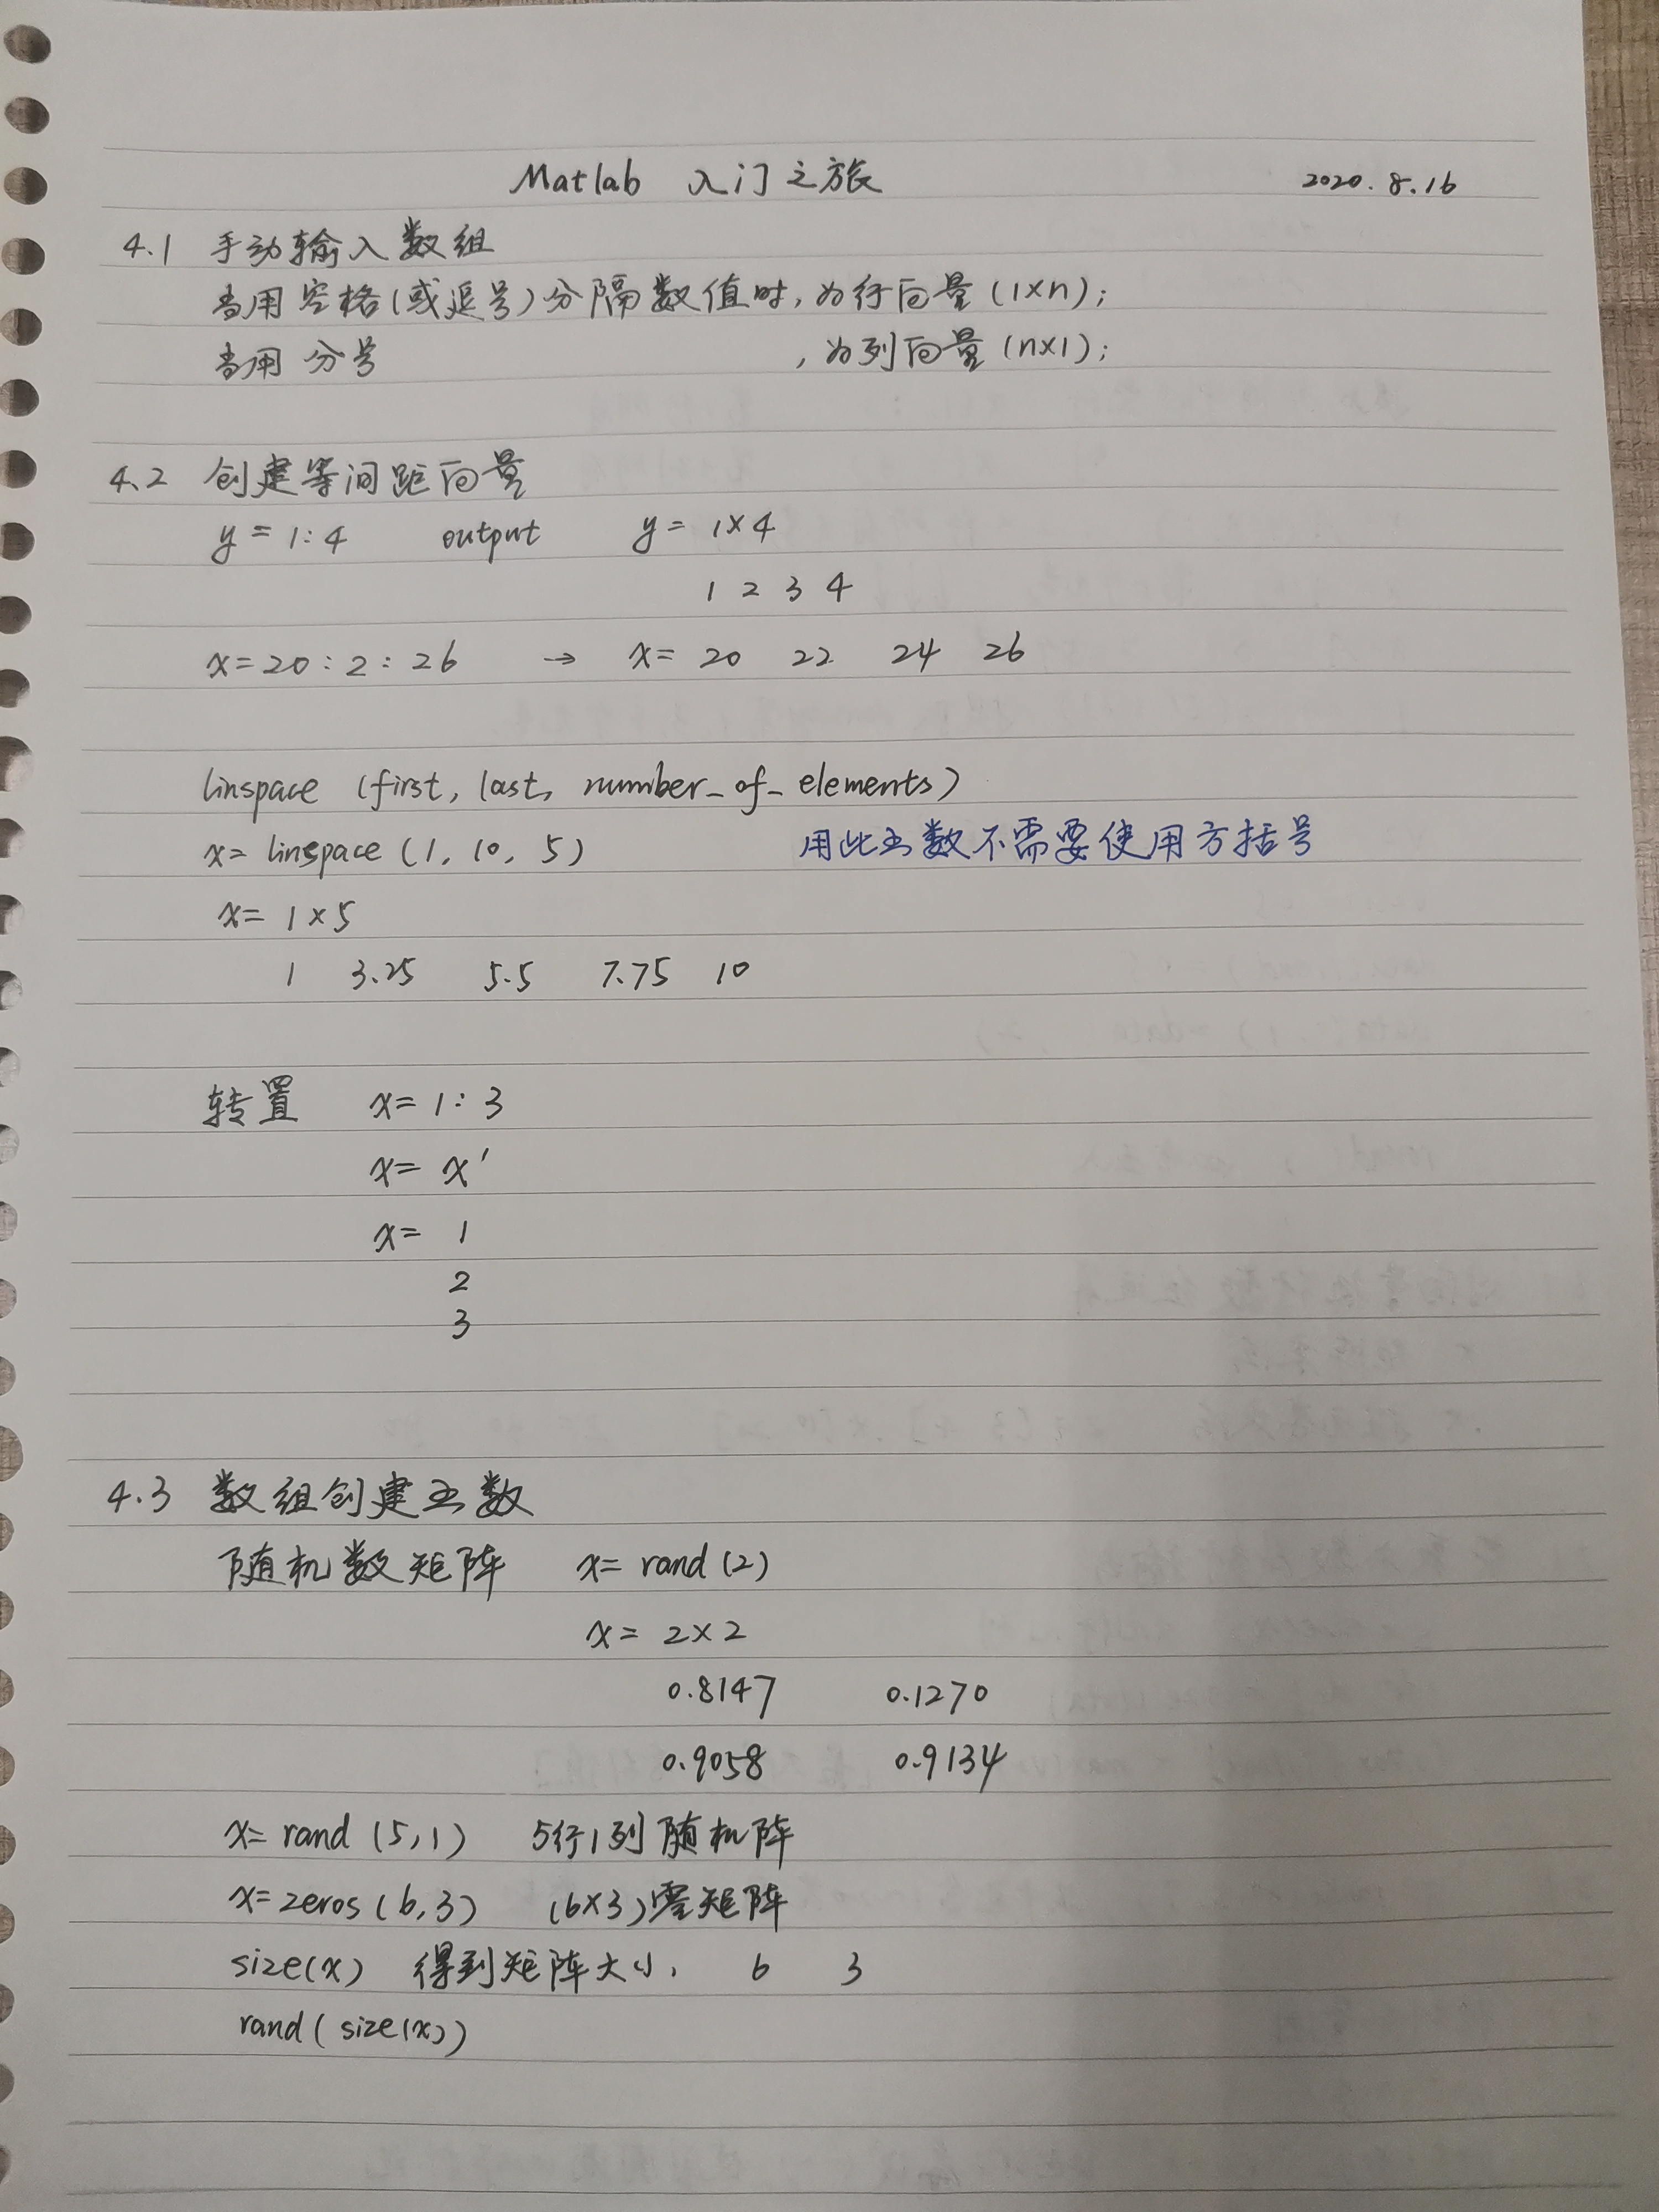 Matlab 入门之旅 2020.8.16
4.1 手动输入数组
当用空格(或逗号)分隔数值时,为行向量(1×n);
当用分号 ,为列向量(n×1);
4.2 创建等间距向量
y = 1:4 output y = 1×4
1 2 3 4
x = 20 : 2 : 26 → x = 20 22 24 26
linspace (first, last, number_of_elements)
x = linspace (1, 10, 5) 用此函数不需要使用方括号
x = 1×5
1 3.25 5.5 7.75 10
转置 x = 1 : 3
x = x'
x = 1
2
3
4.3 数组创建函数
随机数矩阵 x = rand (2)
x = 2×2
0.8147 0.1270
0.9058 0.9134
x = rand (5,1) 5行1列随机阵
x = zeros (6,3) (6×3)零矩阵
size(x) 得到矩阵大小, 6 3
rand( size(x))